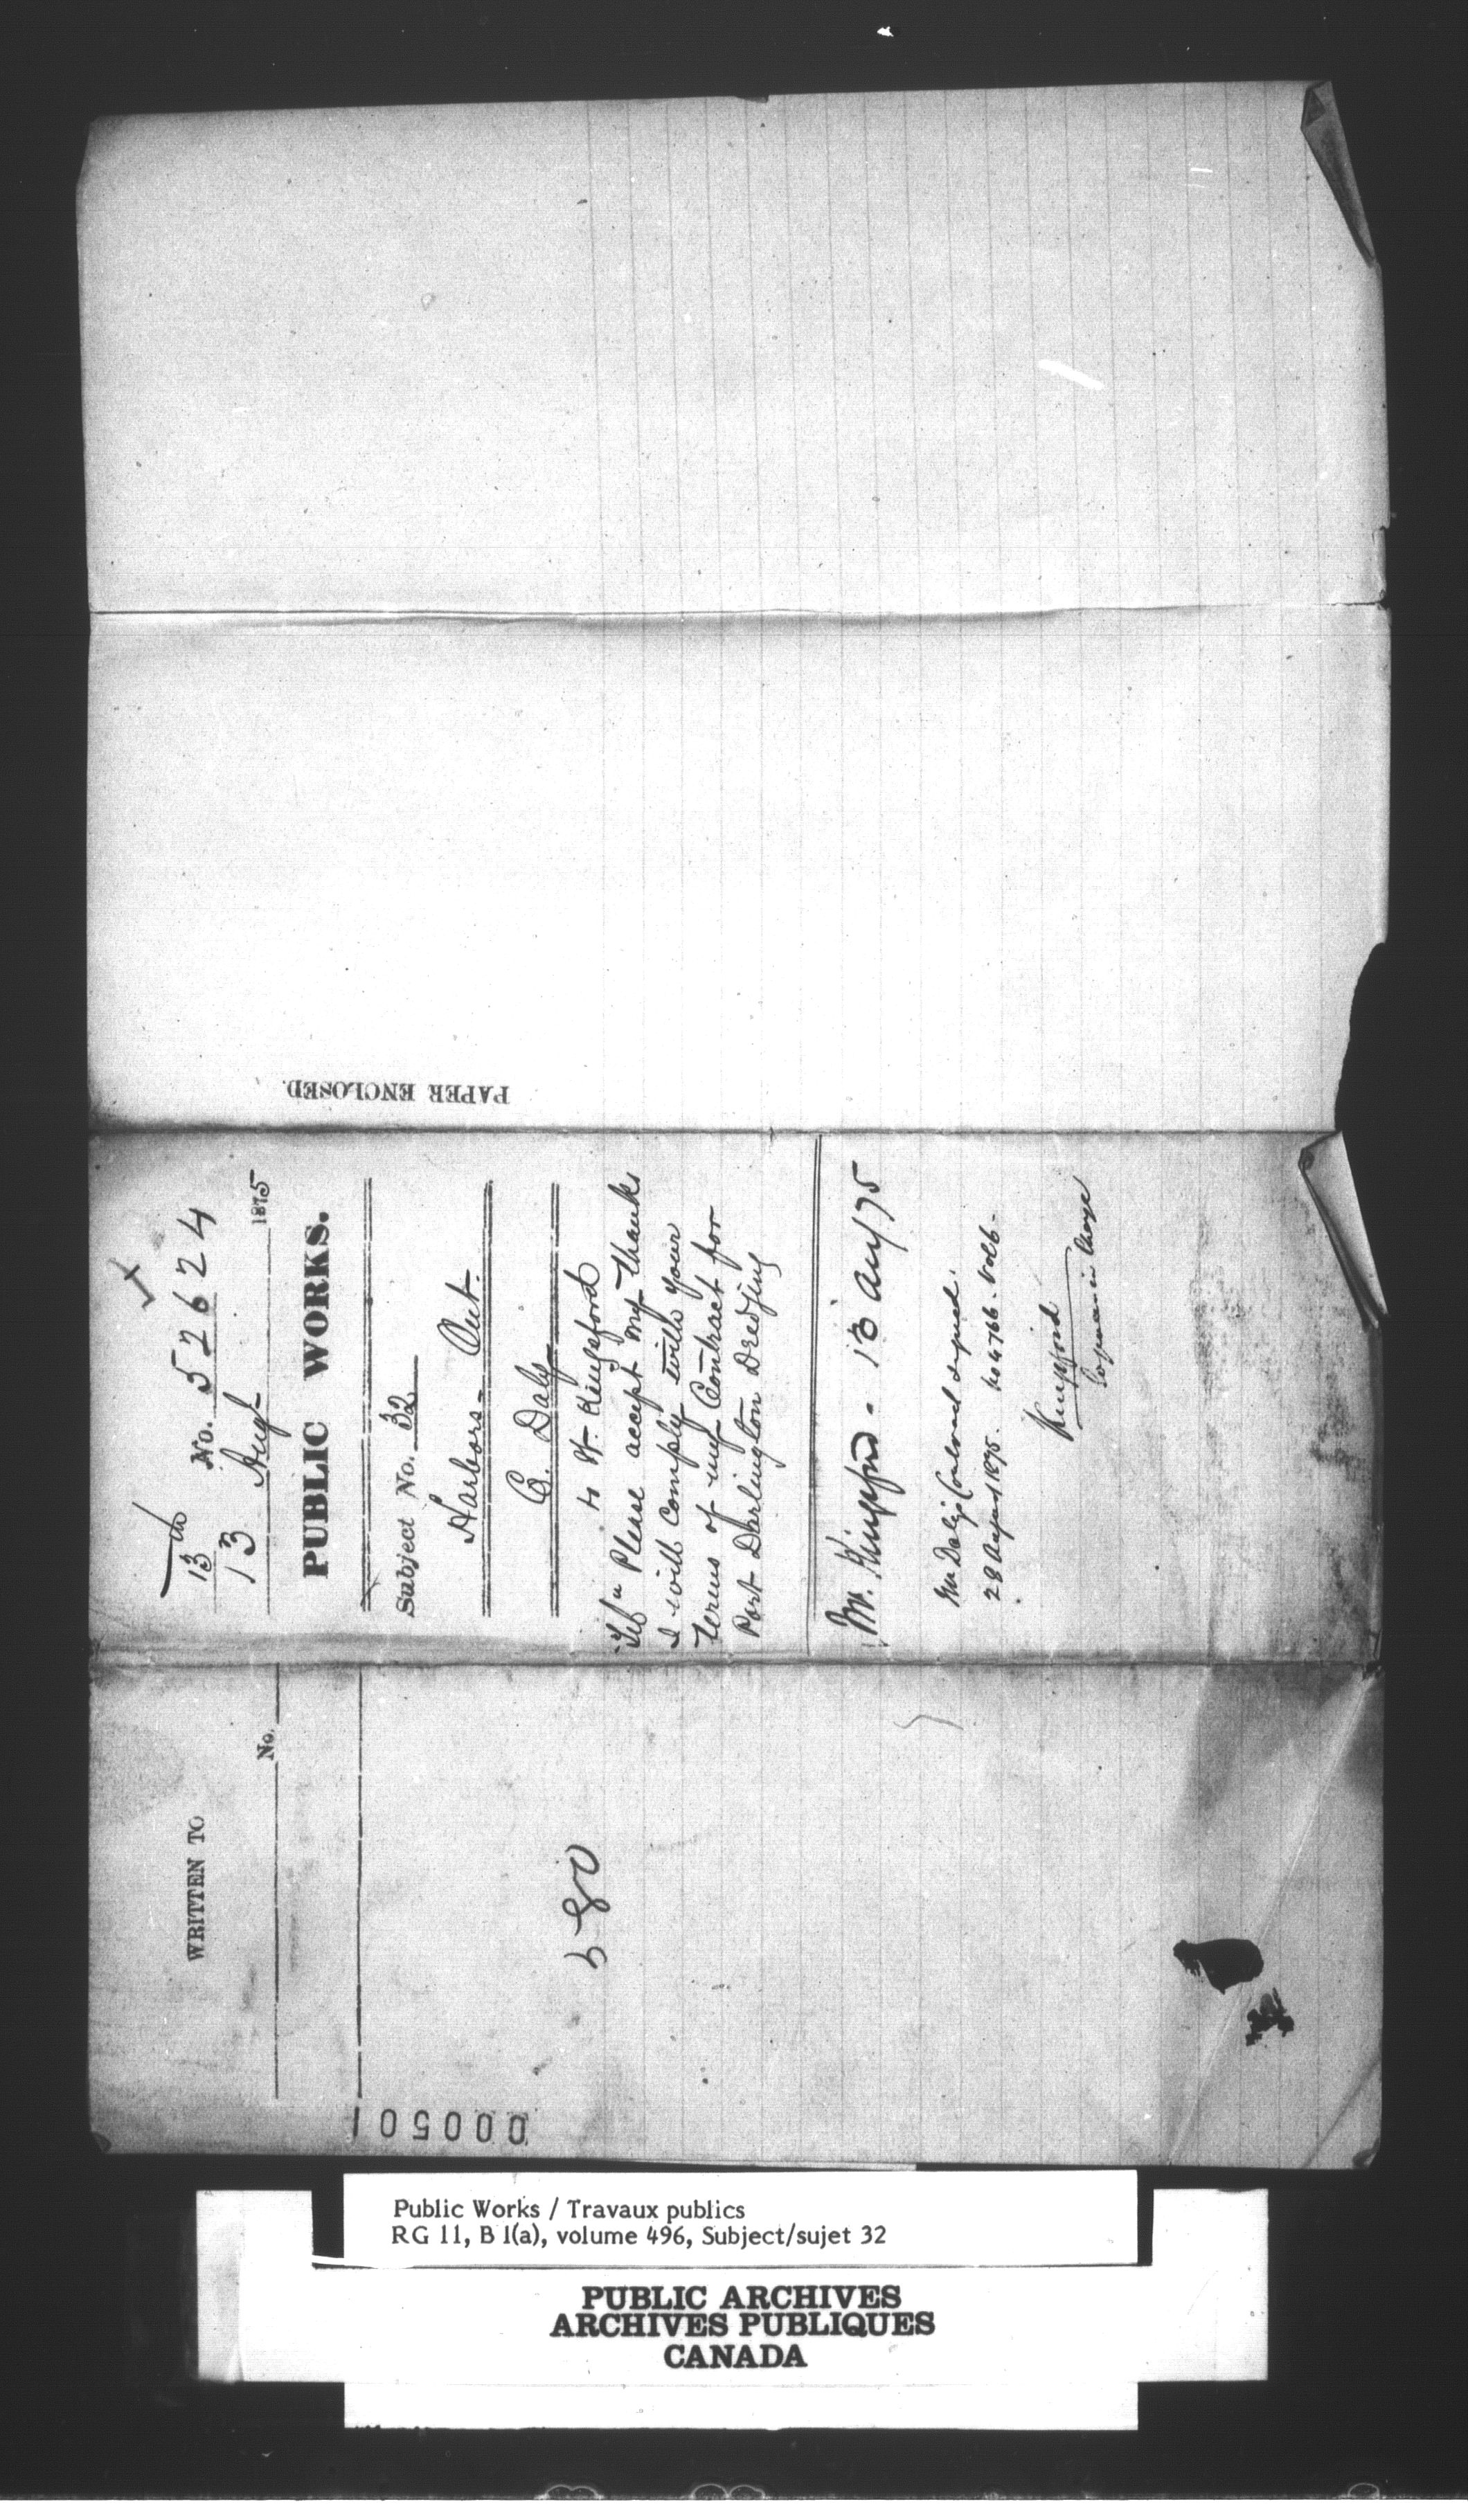 13th No. 52624
13 Augt 1875
PUBLIC WORKS.
Subject No. 32
Harbors - Ont.
C. Daly
to W. Kingsford
Tel" Please accept my thanks
I will comply with your
terms of my Contract for
Port Darlington Dredging
Mr. Kingsford - 13 Aug 75
Mr Daly's Contract signed.
28 August 1875. No 4766.
Kingsford
Engineer in Charge
PAPER ENCLOSED.
WRITTEN TO
No.
580
000501
Public Works / Travaux publics
RG 11, B 1(a), volume 496, Subject/sujet 32
PUBLIC ARCHIVES
ARCHIVES PUBLIQUES
CANADA